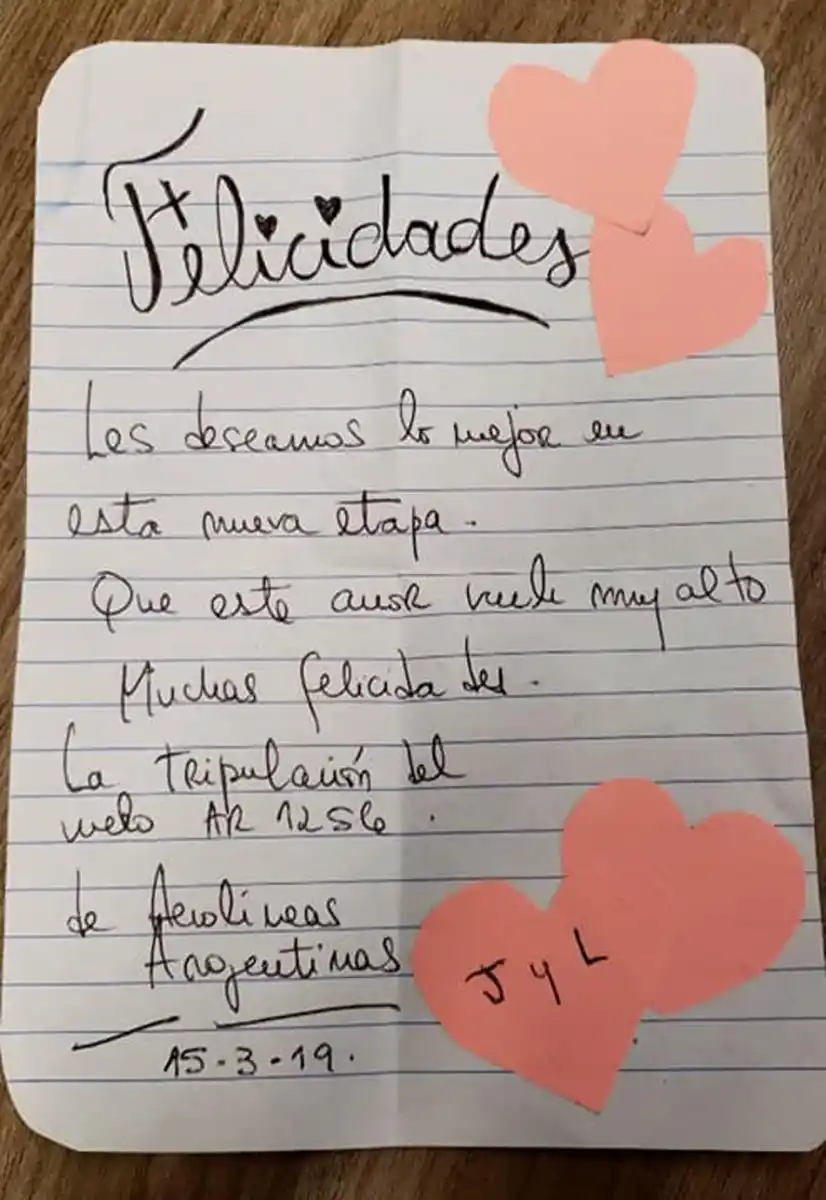 Felicidades
Les deseamos lo mejor en
esta nueva etapa.
Que este amor vuele muy alto
Muchas felicidades.
La tripulación del
vuelo AR 1256.
de Aerolineas
Argentinas
15-3-19.
J y L